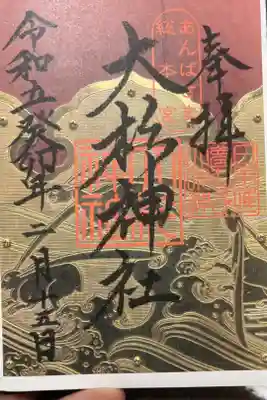 奉拝
あんばさま
総本宮
大杉神社
令和五癸卯年二月十五日